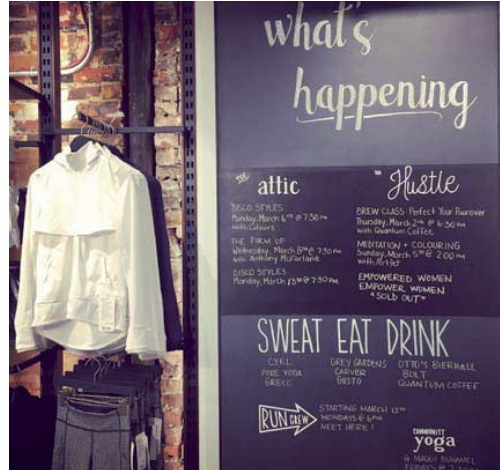 what's
happening
THE attic
DISCO STYLES
Monday, March 6TH @ 7:30 PM
with Colours
THE FIRM UP
Wednesday, March 8TH @ 7:30 PM
with Anthony McFarlane
DISCO STYLES
Monday, March 13TH @ 7:30 PM
THE Hustle
BREW CLASS: Perfect Your Pourover
Thursday, March 2ND @ 6:30 PM
with Quantum Coffee
MEDITATION + COLOURING
Sunday, March 5TH @ 2:00 PM
with
EMPOWERED WOMEN
EMPOWER WOMEN
*SOLD OUT*
SWEAT EAT DRINK
CYKL GREY GARDENS OTTO'S BIERHALL
PURE YOGA CARVER BOLT
GRECO GUSTO QUANTUM COFFEE
RUN CREW
STARTING MARCH 13TH
MONDAYS @ 6PM
MEET HERE!
COMMUNITY
yoga